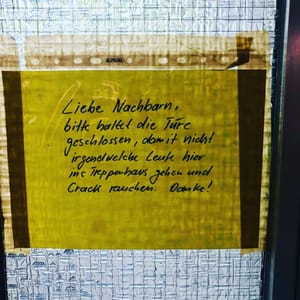 Liebe Nachbarn,
bitte haltet die Türe
geschlossen, damit nicht
irgendwelche Leute hier
ins Treppenhaus gehen und
Crack rauchen. Danke!